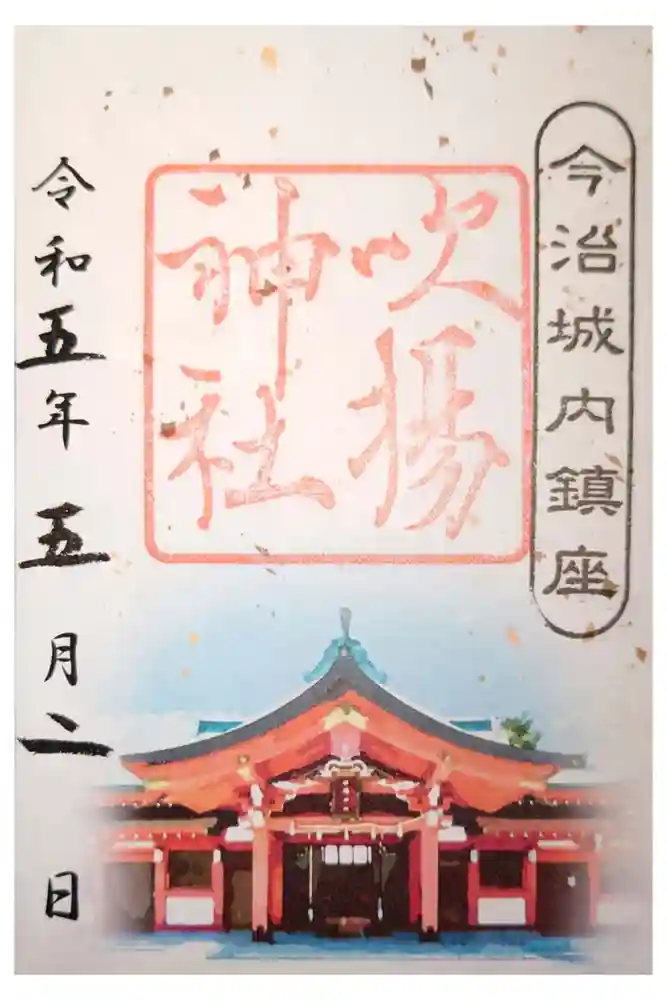 今治城内鎮座
吹揚
神社
令和五年 五月二日